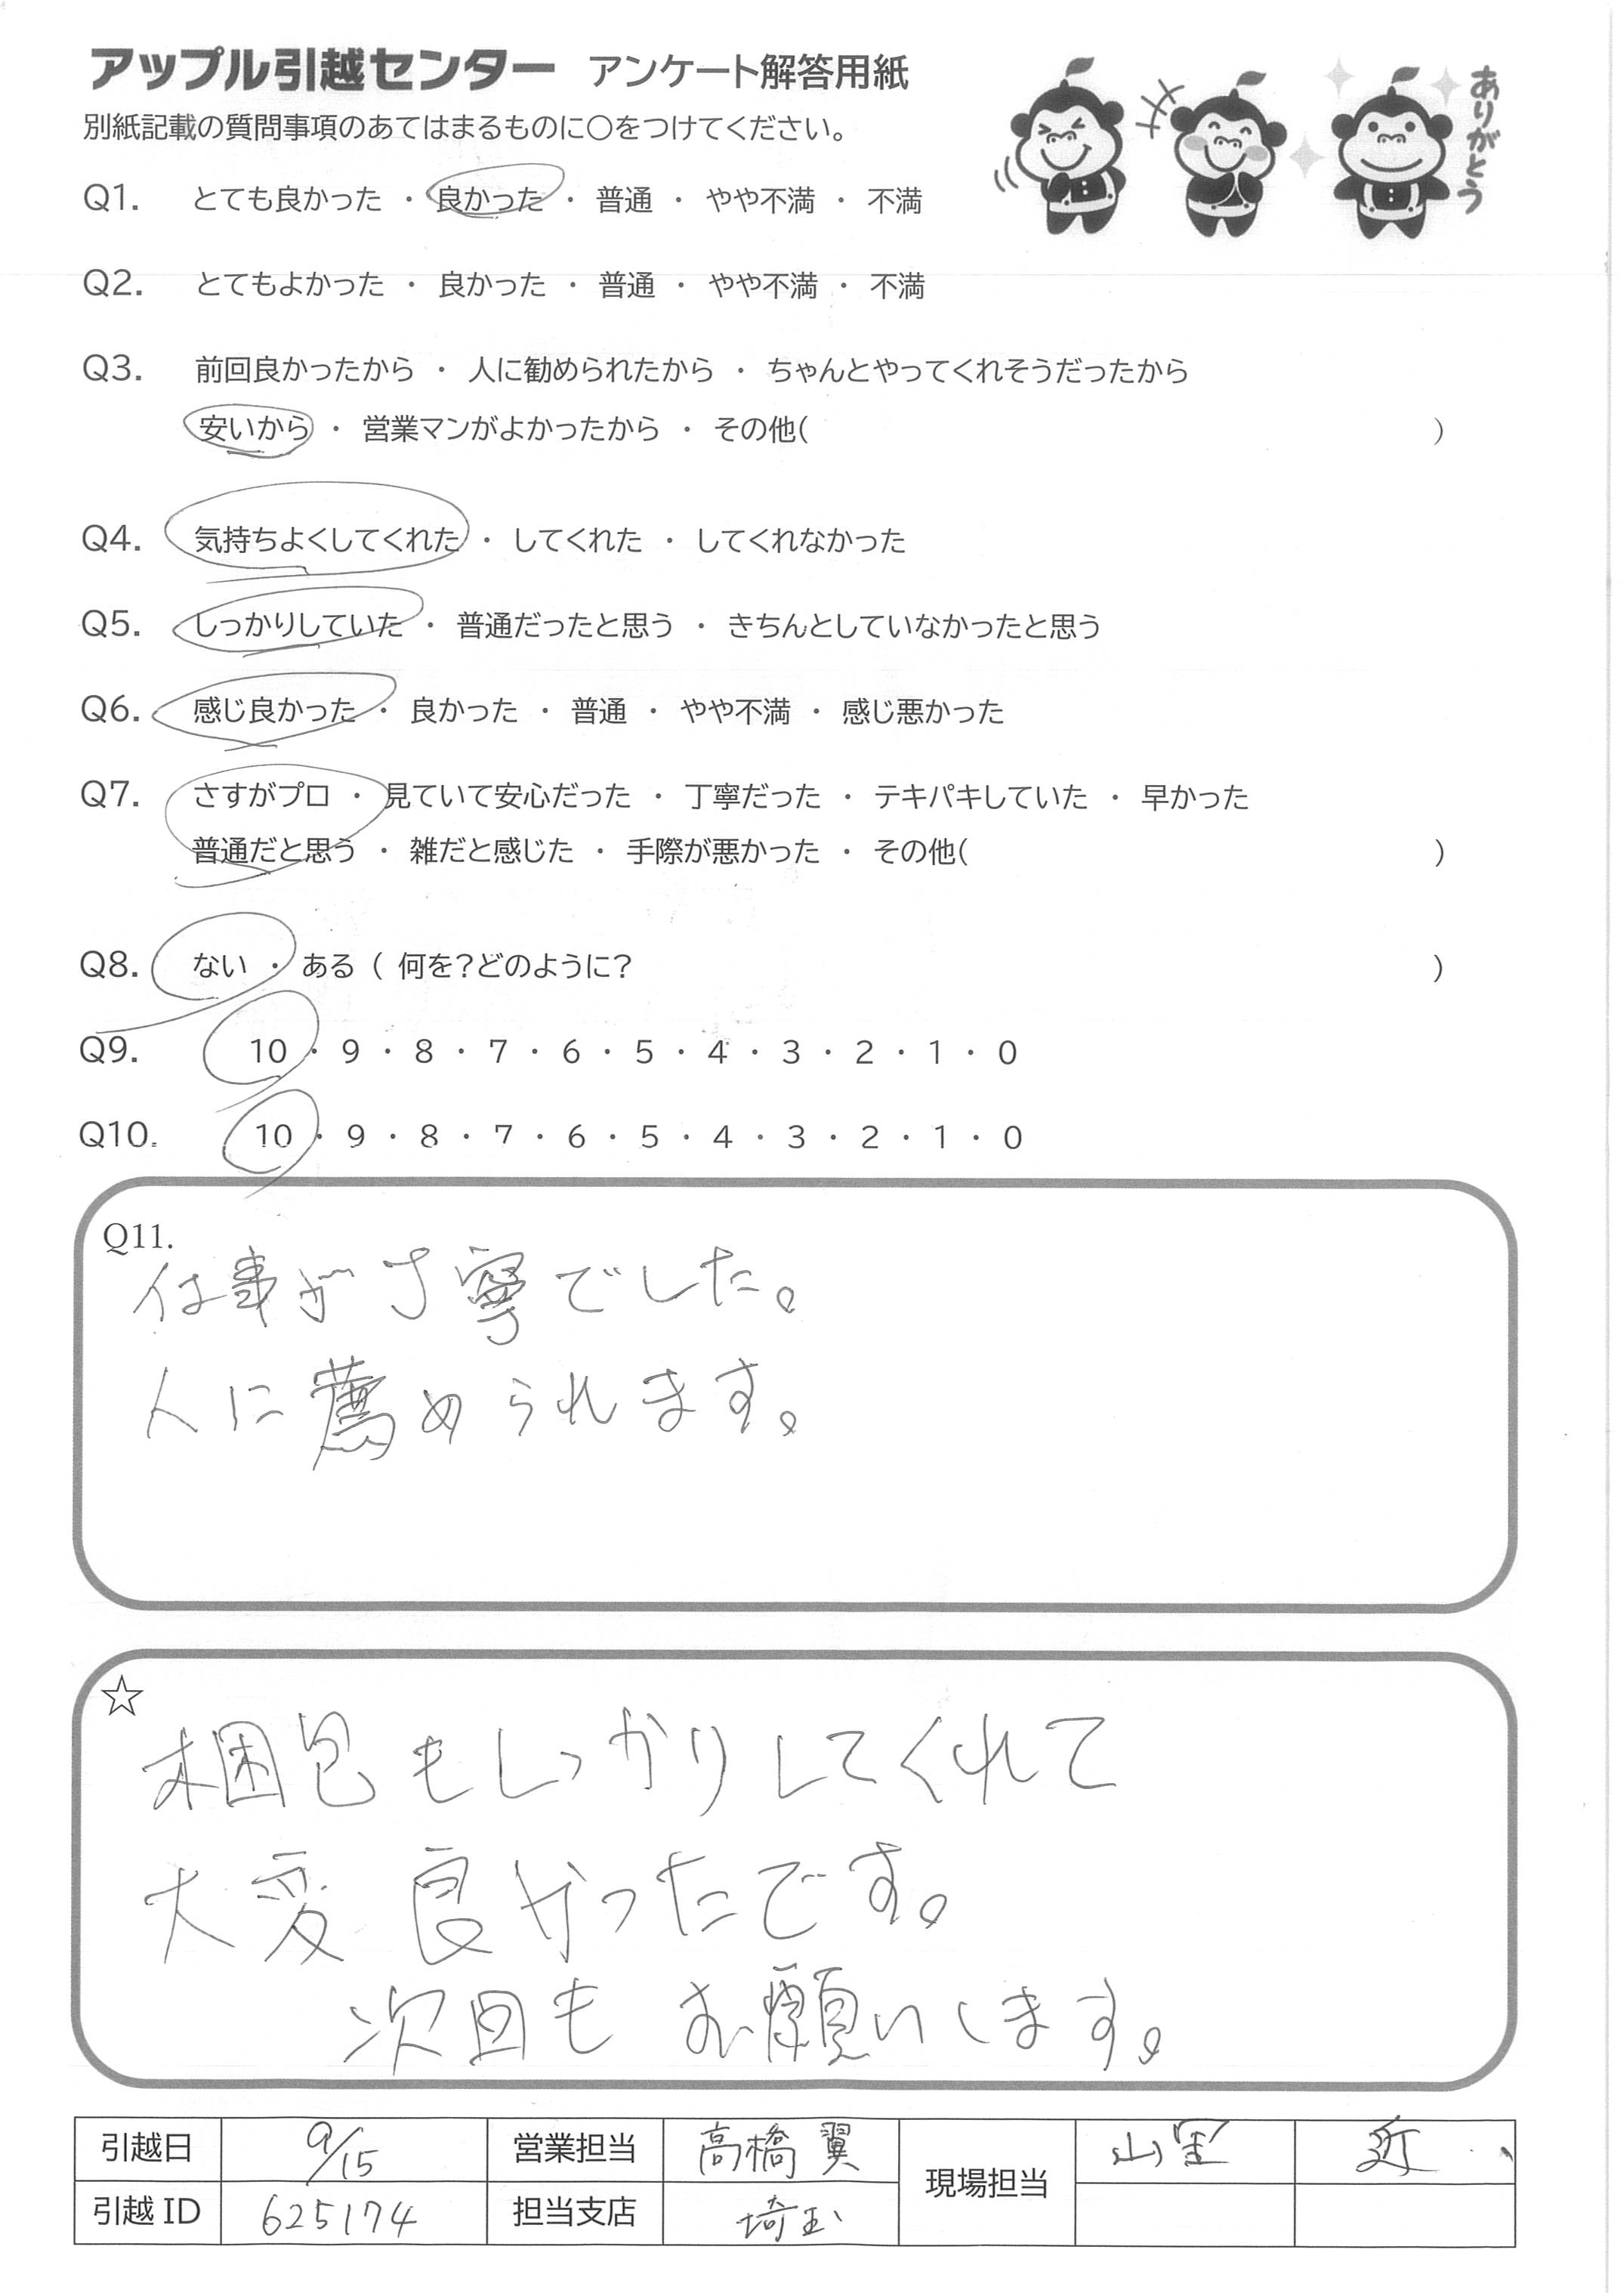 アップル引越センター アンケート解答用紙
ありがとう
別紙記載の質問事項のあてはまるものに○をつけてください。
Q1. とても良かった ・ 良かった ・ 普通 ・ やや不満 ・ 不満
Q2. とてもよかった ・ 良かった ・ 普通 ・ やや不満 ・ 不満
Q3. 前回良かったから ・ 人に勧められたから ・ ちゃんとやってくれそうだったから
安いから ・ 営業マンがよかったから ・ その他( )
Q4. 気持ちよくしてくれた ・ してくれた ・ してくれなかった
Q5. しっかりしていた ・ 普通だったと思う ・ きちんとしていなかったと思う
Q6. 感じ良かった ・ 良かった ・ 普通 ・ やや不満 ・ 感じ悪かった
Q7. さすがプロ ・ 見ていて安心だった ・ 丁寧だった ・ テキパキしていた ・ 早かった
普通だと思う ・ 雑だと感じた ・ 手際が悪かった ・ その他( )
Q8. ない ・ ある ( 何を?どのように? )
Q9. 10 ・ 9 ・ 8 ・ 7 ・ 6 ・ 5 ・ 4 ・ 3 ・ 2 ・ 1 ・ 0
Q10. 10 ・ 9 ・ 8 ・ 7 ・ 6 ・ 5 ・ 4 ・ 3 ・ 2 ・ 1 ・ 0
Q11.
仕事が丁寧でした。
人に薦められます。
☆
梱包もしっかりしてくれて
大変良かったです。
次回もお願いします。
引越日 9/15 営業担当 高橋 翼 現場担当 山里 近
引越ID 625174 担当支店 埼玉